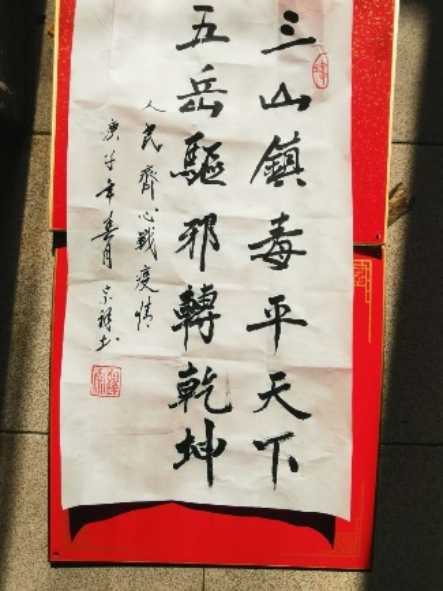 三山鎮毒平天下
五岳驅邪轉乾坤
人民齊心戰疫情
庚子年春月 宗祥书